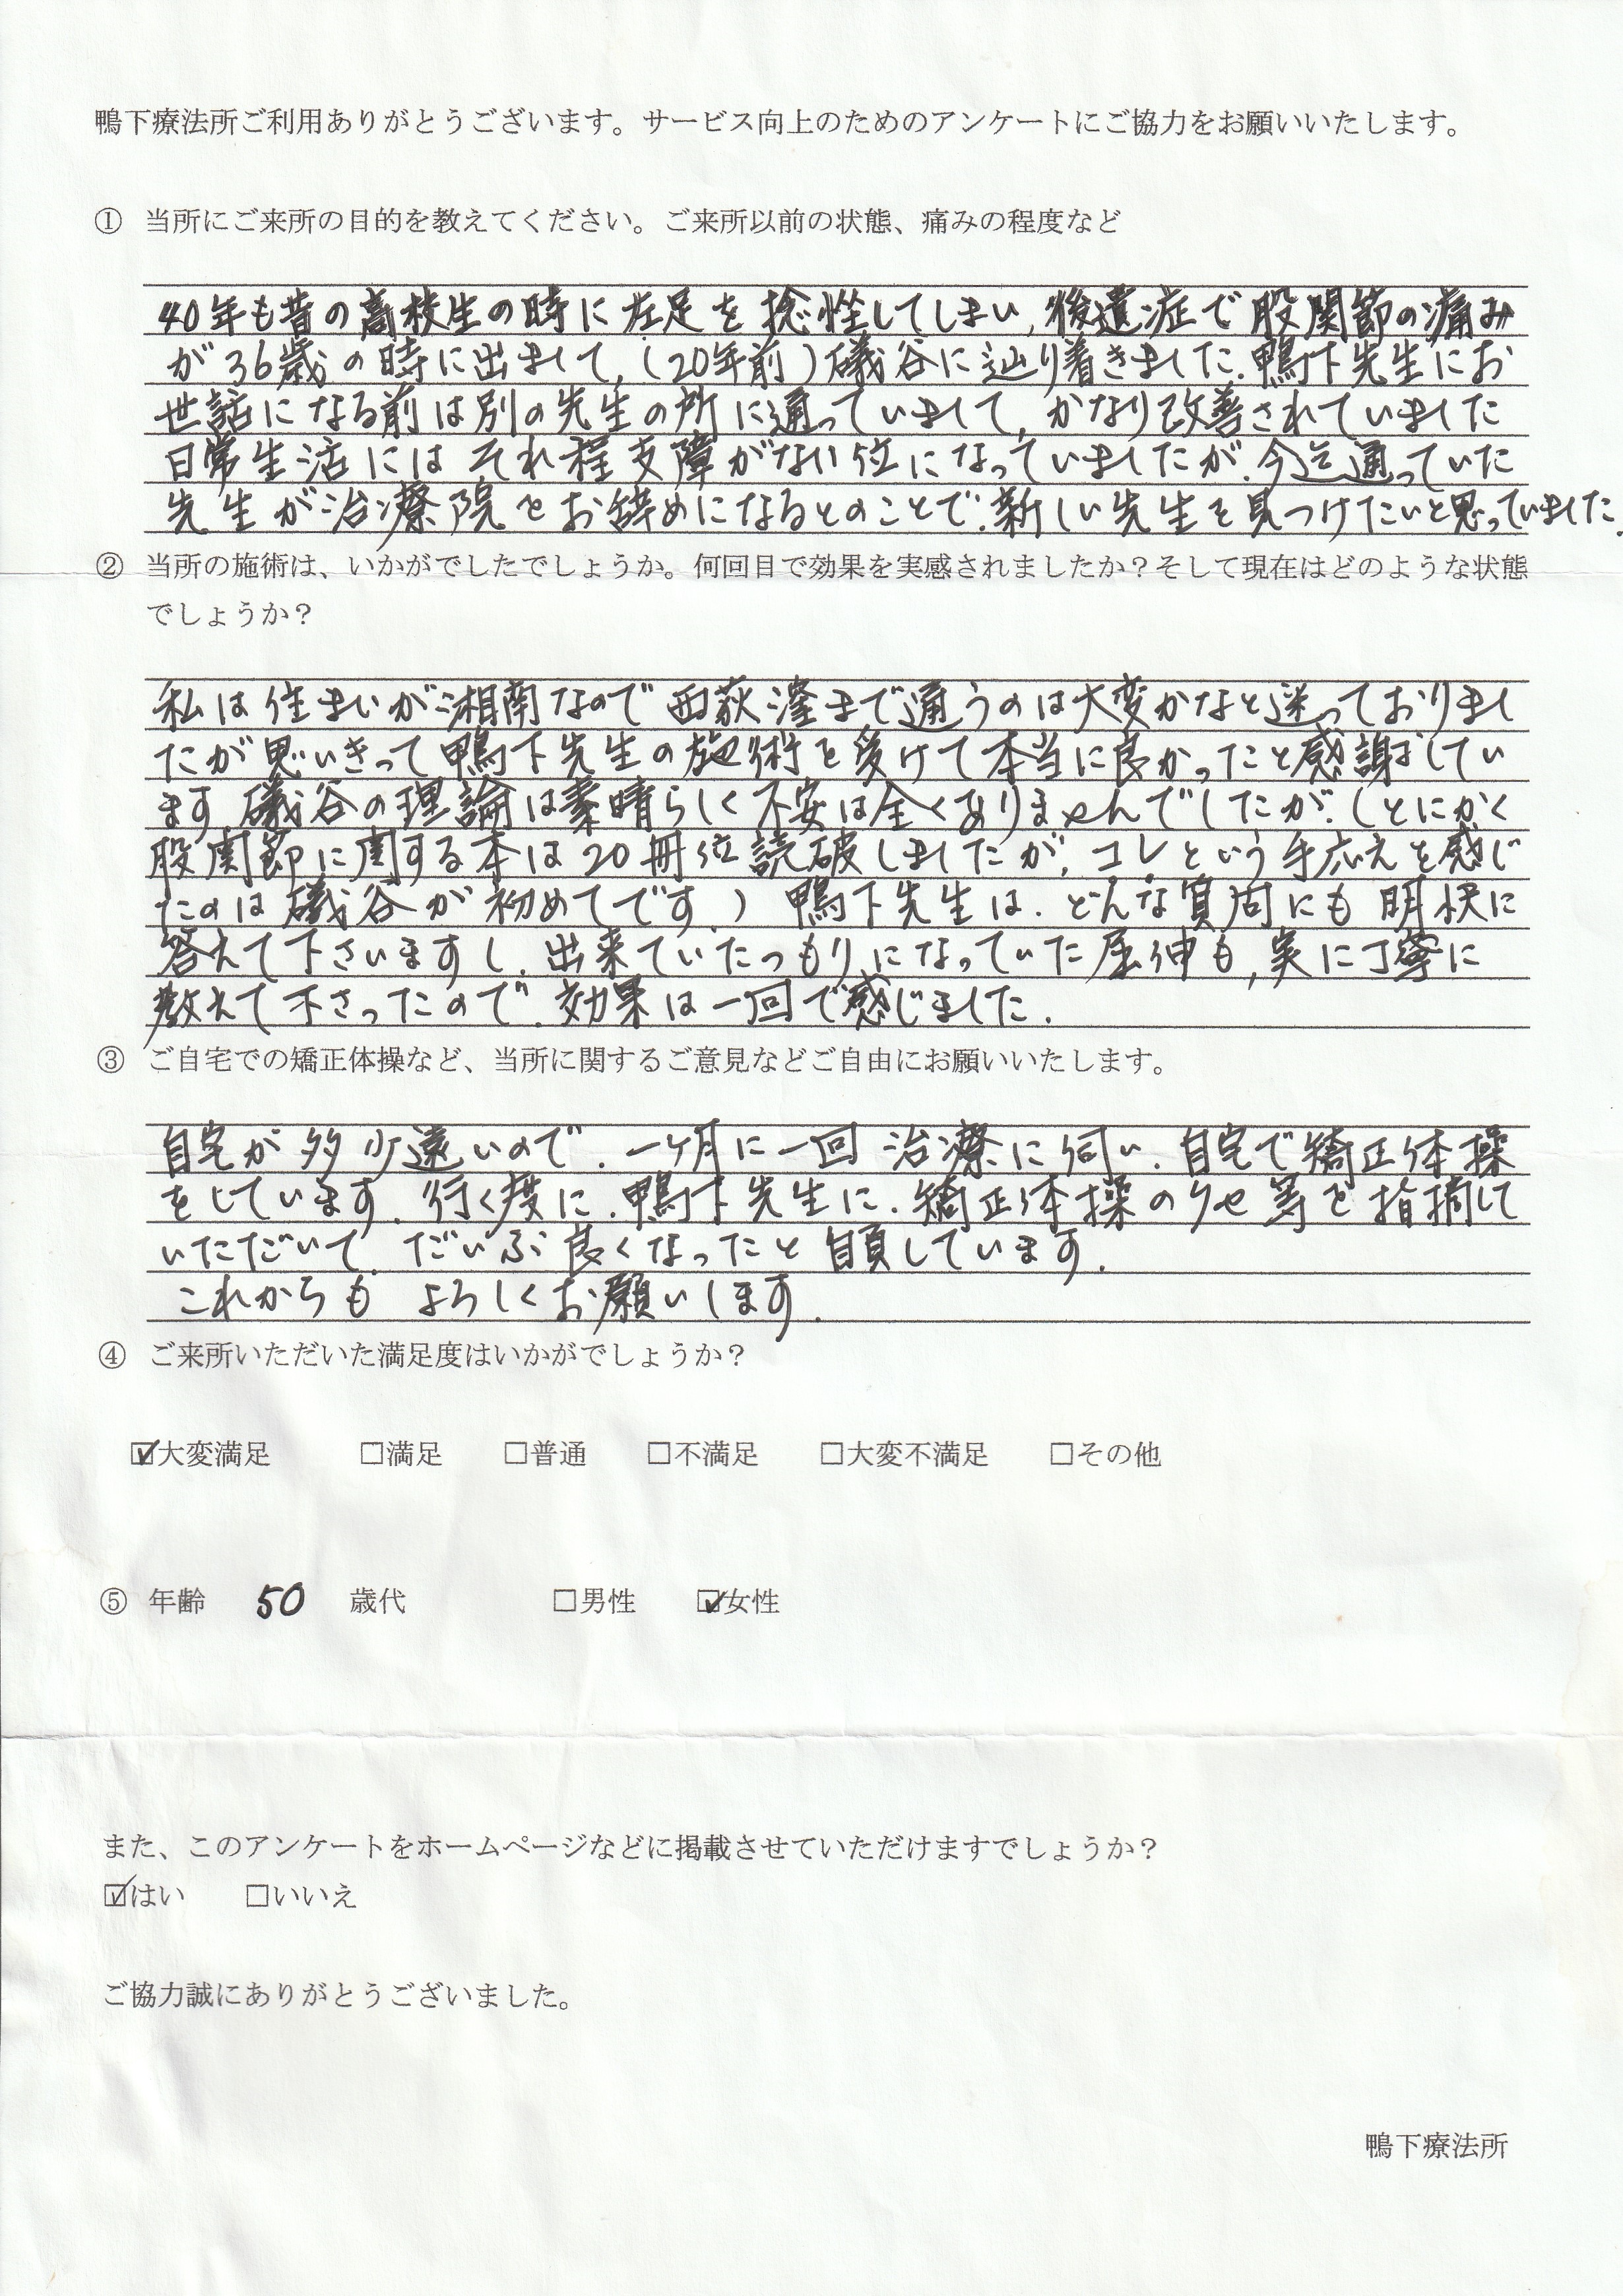 鴨下療法所ご利用ありがとうございます。サービス向上のためのアンケートにご協力をお願いいたします。
① 当所にご来所の目的を教えてください。ご来所以前の状態、痛みの程度など
40年も昔の高校生の時に左足を捻挫してしまい,後遺症で股関節の痛み
が36歳の時に出まして,(20年前)礒谷に辿り着きました.鴨下先生にお
世話になる前は別の先生の所に通っていまして,かなり改善されていました
日常生活にはそれ程支障がない位になっていましたが.今迄通っていた
先生が治療院をお辞めになるとのことで.新しい先生を見つけたいと思っていました.
② 当所の施術は、いかがでしたでしょうか。何回目で効果を実感されましたか？そして現在はどのような状態
でしょうか？
私は住まいが湘南なので西荻窪まで通うのは大変かなと迷っておりまし
たが思いきって鴨下先生の施術を受けて本当に良かったと感謝してい
ます.礒谷の理論は素晴らしく不安は全くありませんでしたが.(とにかく
股関節に関する本は20冊位読破しましたが,コレという手応えを感じ
たのは礒谷が初めてです.) 鴨下先生は.どんな質問にも明快に
答えて下さいますし.出来ていたつもりになっていた屈伸も,実に丁寧に
教えて下さったので.効果は一回で感じました.
③ ご自宅での矯正体操など、当所に関するご意見などご自由にお願いいたします。
自宅が多少遠いので.一ヶ月に一回治療に伺い.自宅で矯正体操
をしています.行く度に.鴨下先生に.矯正体操のクセ等を指摘して
いただいて.だいぶ良くなったと自負しています.
これからも よろしくお願いします.
④ ご来所いただいた満足度はいかがでしょうか？
☑大変満足 □満足 □普通 □不満足 □大変不満足 □その他
⑤ 年齢 50 歳代 □男性 ☑女性
また、このアンケートをホームページなどに掲載させていただけますでしょうか？
☑はい □いいえ
ご協力誠にありがとうございました。
鴨下療法所